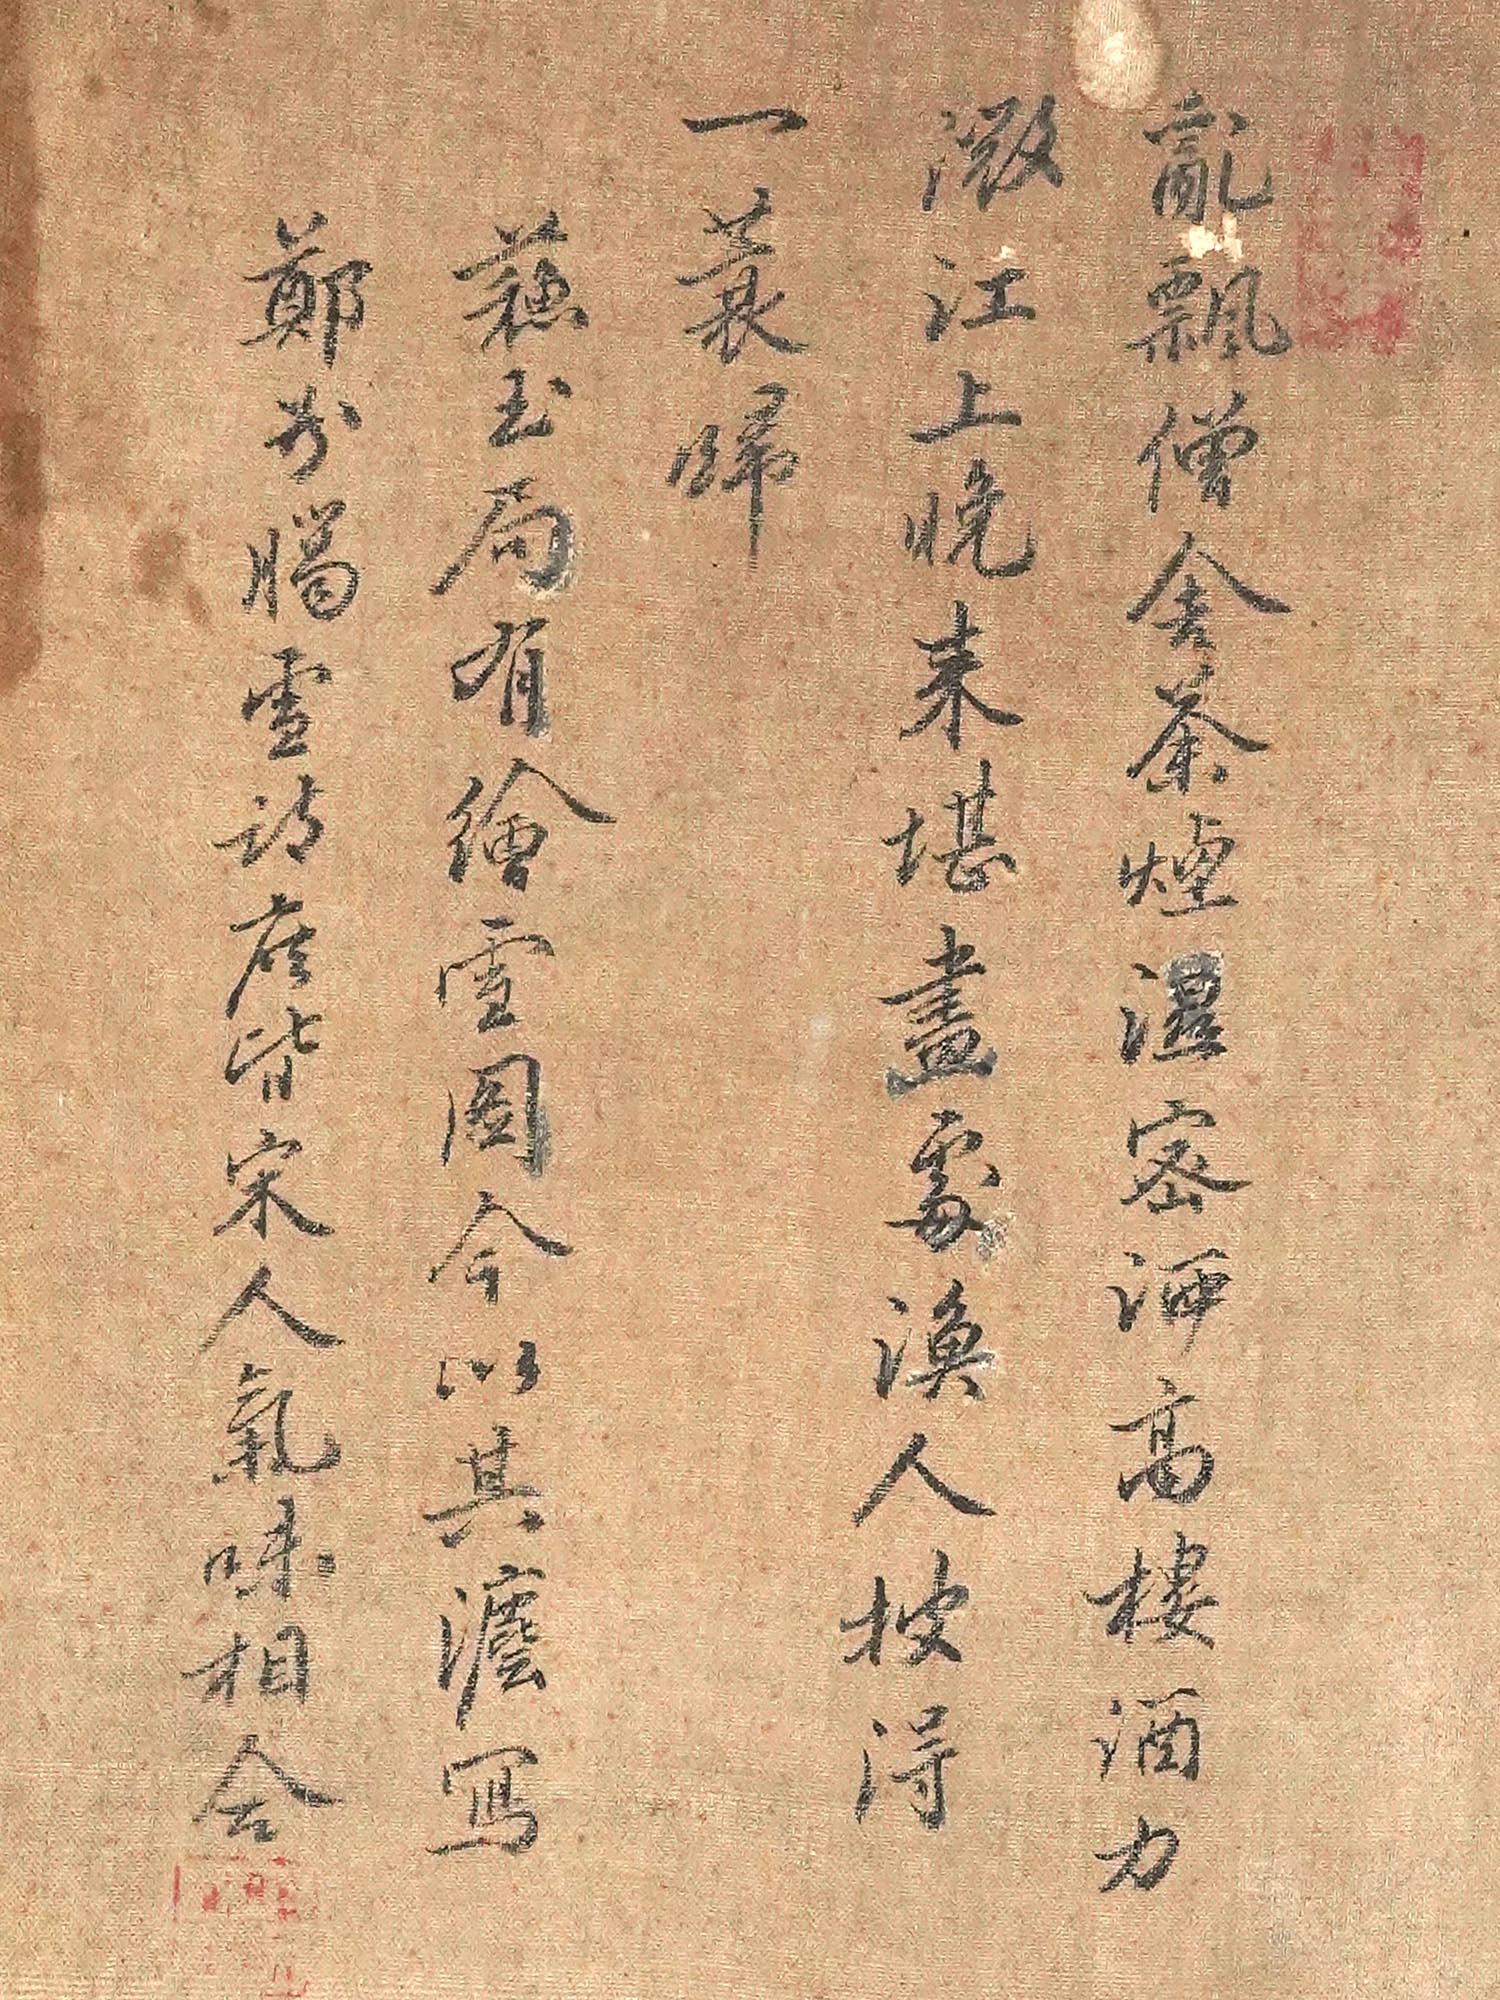 亂飄僧舍茶煙湿密洒高樓酒力
微江上晚来堪畫處漁人披得
一蓑歸
蘇玉局有繪雪圖今以其灋寫
鄭谷臈雪詩皆宋人氣味相合